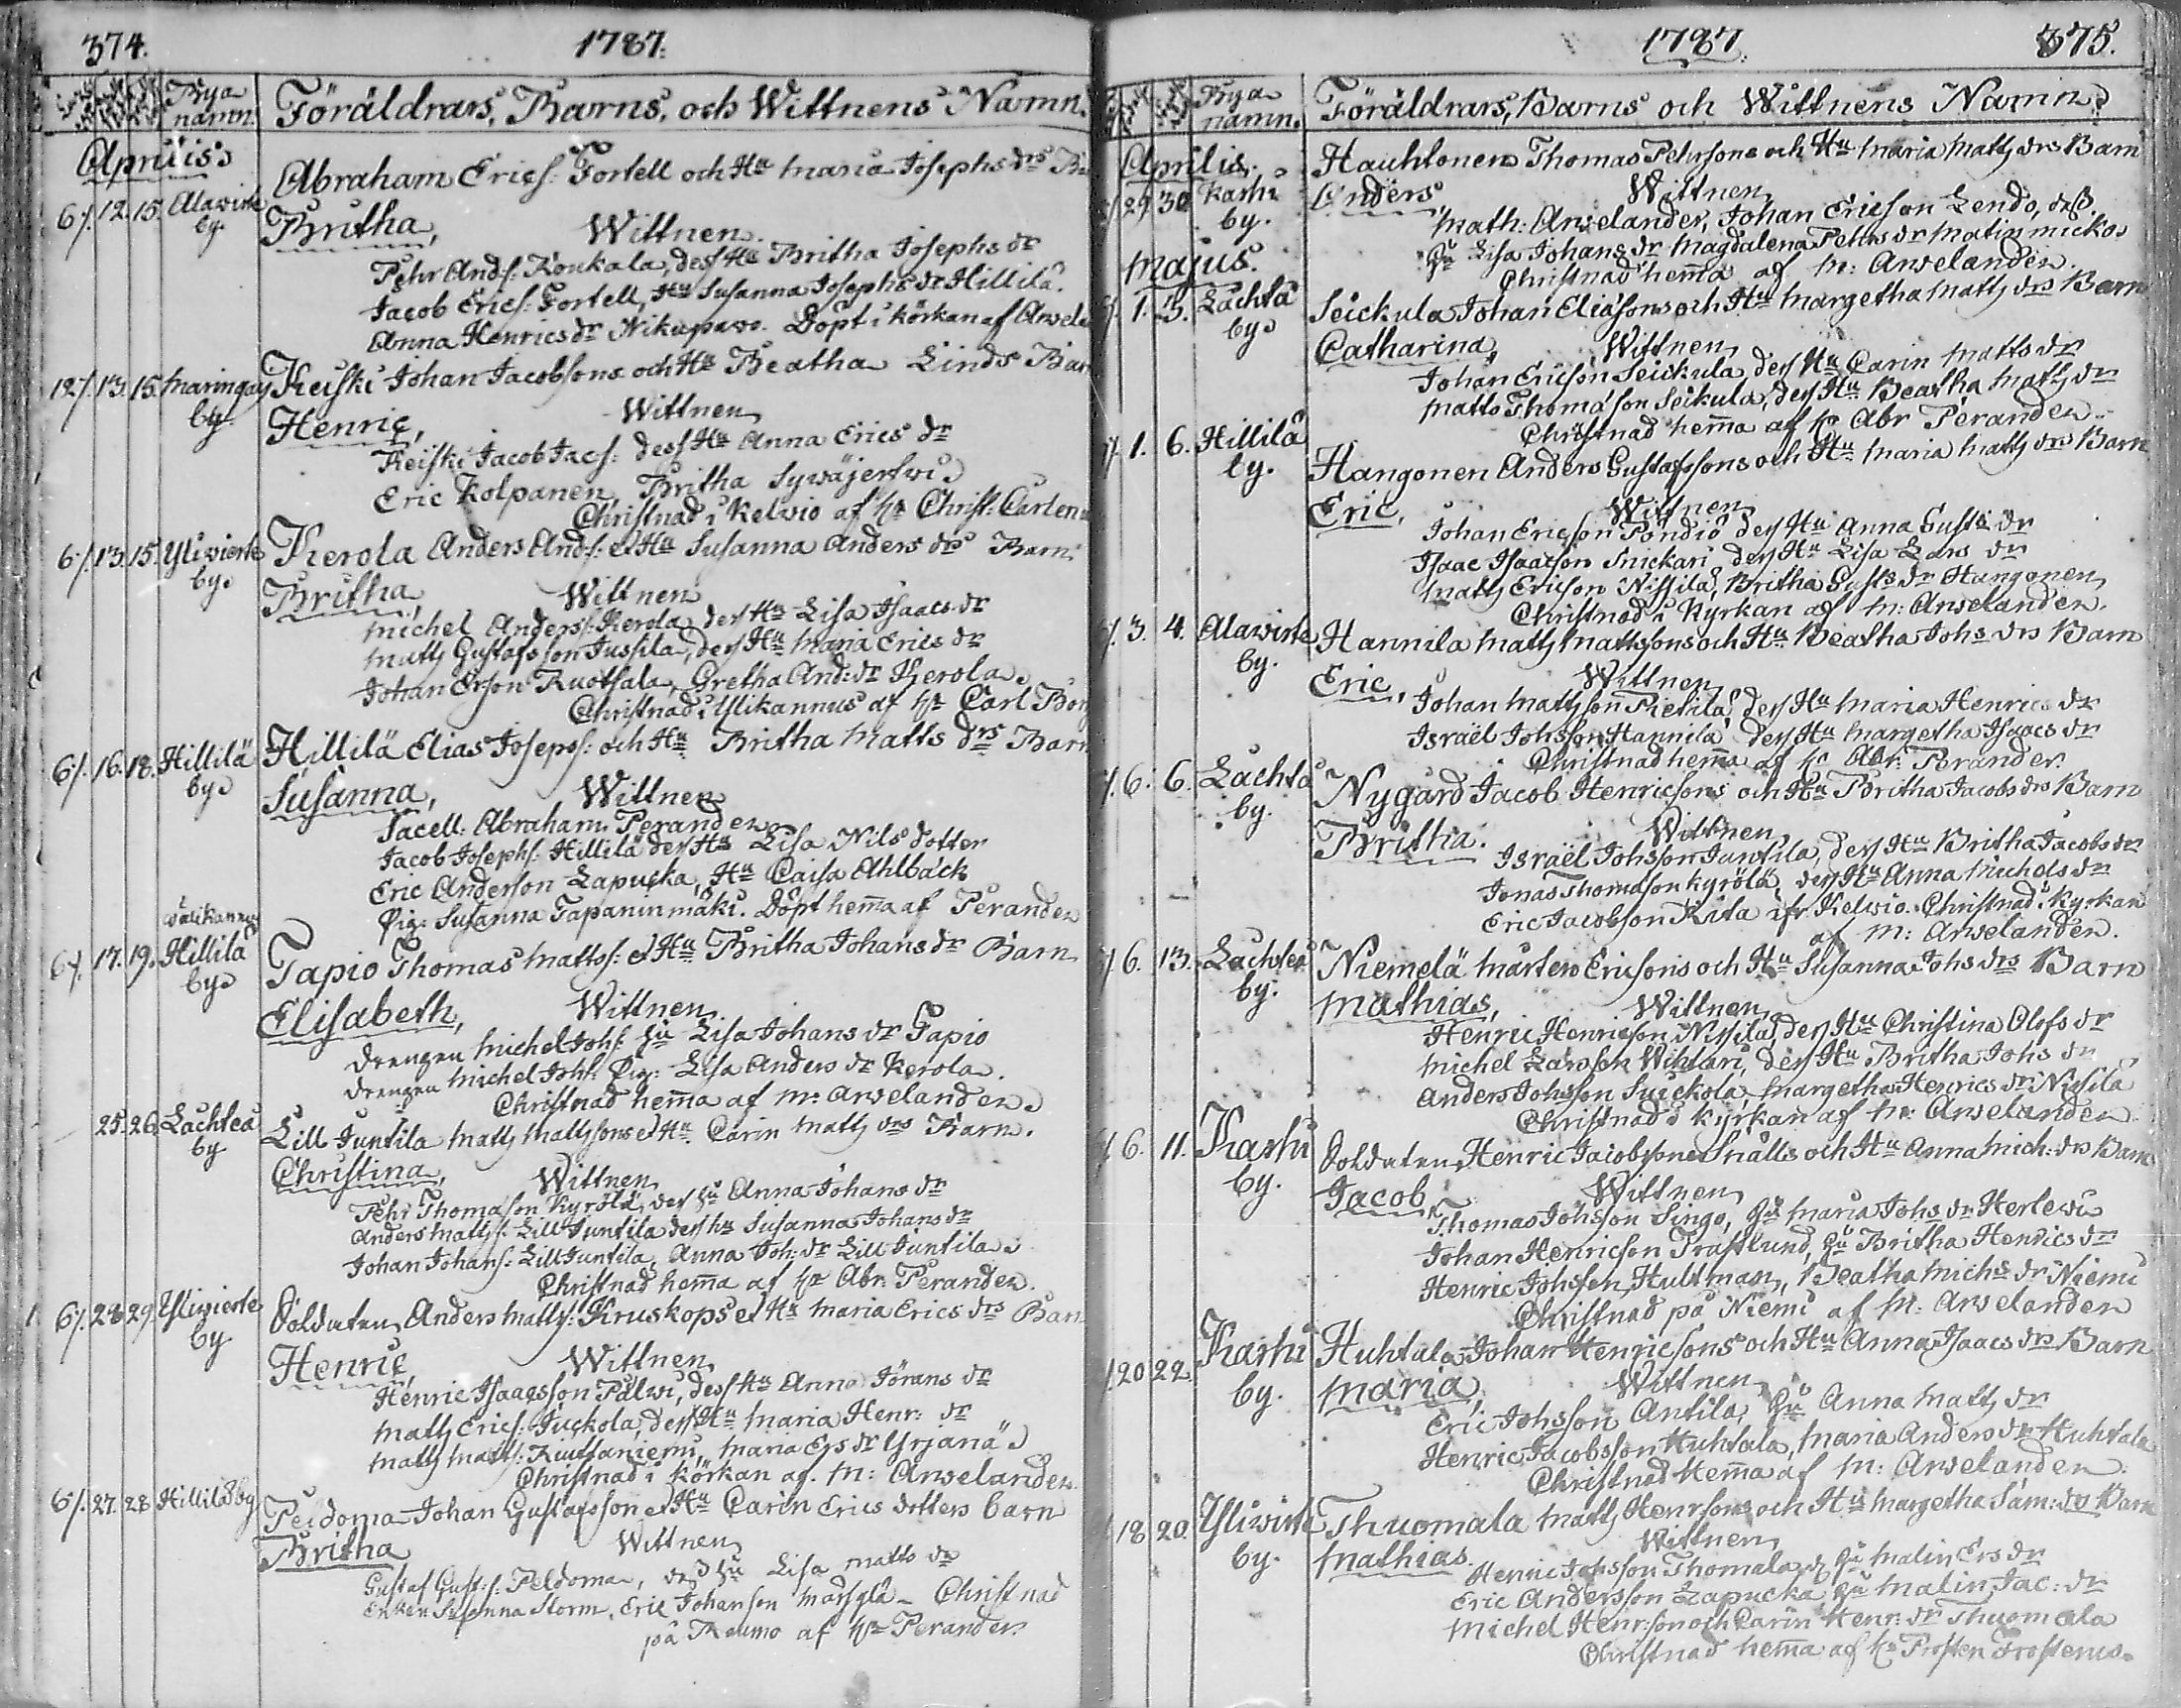 374. 1787.
Bya namn. Föräldrars, Barns, och Wittnens Namn.
Aprilis.
6/. 12. 15. Alawirte by. Abraham Erics: Fortell och Hu Maria Josephs drs
Britha, Wittnen.
Pehr Ands: Koukala, dess Hu Britha Josephs dr
Jacob Erics: Fortell, Hu Susanna Josephs dr Hillilä.
Anna Henrics dr Nikupawo. Döpt i körkan af
12/. 13. 15. Maringais by Keiski Johan Jacobssons och Hu Beatha Linds Barn
Henric, Wittnen
Keiski Jacob Jacs: dess Hu Anna Erics dr
Eric Kolpanen, Britha Sywäjerfwi
Christnad i Kelwio af Hr Christ: Carlen
6/. 13. 15. Yliwierte by. Kerola Anders Ands: et Hu Susanna Anders drs Barn
Britha, Wittnen
Michel Anders: Kerola, dess Hu Lisa Isaacs dr
Matts Gustafsson Jussila, dess Hu Maria Erics dr
Johan Erson Ruotsala, Gretha And: dr Kerola.
Christnad i Ylikannus af Hr Carl
6/. 16. 18. Hillilä by. Hillilä Elias Joseps: och Hu Britha Matts drs Barn
Susanna, Wittnen
Sacell: Abraham Perander
Jacob Josephs: Hillilä dess Hu Lisa Nils dotter
Eric Anderson Lapucka, Hu Caisa Ahlbäck
Pig: Susanna Tapaninmäki. Döpt hema af Perander
6/. 17. 19. Wälikannus Hillilä by. Tapio Thomas Matts: et Hu Britha Johans dr Barn
Elisabeth, Wittnen.
Drengen Michel Johs: Hu Lisa Johans dr Tapio
Drengen Michel Johs: Pig: Lisa Anders dr Kerola.
Christnad hema af M: Arwelander.
25. 26. Lachtea by Lill Juntila Matts Mattssons et Hu Carin Matts drs Barn.
Christina, Wittnen
Pehr Thomason Kyrölä, dess Hu Anna Johans dr
Anders Matts: Lill Juntila dess Hu Susanna Johans dr
Johan Johans: Lill Juntila, Anna Joh: dr Lill Juntila.
Christnad hema af Hr Abr: Perander.
6/. 28. 29. Yliwierte by Soldaten Anders Matts: Kruskops et Hu Maria Erics drs Barn
Henric, Wittnen
Henric Isaacsson Palwi, dess Hu Anna Jörans dr
Matts Erics: Juckola, dess Hu Maria Henr: dr
Matts Matts: Kiuttaniemi, Maria Ers dr Yrjanä
Christnad i körkan af M: Arwelander.
6/. 27. 28 Hillilä by Peldoma Johan Gustafsson et Hu Carin Erics dotters barn
Britha Wittnen
Gustaf Gust: s: Peldoma, dess Hu Lisa Matts dr
Enkan Susanna Storm, Eric Johanson Christnad
på Raumo af Hr Perander.
1787. 375.
Bya namn. Föräldrars, Barns och Wittnens Namn.
Aprilis.
29 30 Karhi by. Hauhtonen Thomas Pehrsons och Hu Maria Matts drs Barn
Anders, Wittnen
Math: Arwelander, Johan Ericson Lendo, dess
Hu Lisa Johans dr Magdalena Pehrs dr
Christnad hema af M: Arwelander.
Majus.
1. 3. Lachtå by. Seickula Johan Eliasons och Hu Margetha Matts drs Barn
Catharina, Wittnen
Johan Ericson Seickula dess Hu Carin Matts dr
Matts Thomason Seikula, dess Hu Beatha Matts dr
Christnad hema af Hr Abr Perander.
1. 6. Hillilä by. Hangonen Anders Gustafssons och Hu Maria Matts drs Barn
Eric, Wittnen
Johan Ericson Pöndiö dess Hu Anna Gusts dr
Isaac Isaacson Snickari dess Hu Lisa Lars dr
Matts Ericson Nissilä, Britha Gusts dr Hangonen
Christnad i Kyrkan af M: Arwelander.
3. 4. Alawirte by. Hannila Matts Mattssons och Hu Beatha Johs drs Barn
Eric, Wittnen
Johan Mattsson Pietilä, dess Hu Maria Henrics dr
Israël Johsson Hannila dess Hu Margetha Isaacs dr
Christnad hema af Hr Abr: Perander.
6. 6. Lachtå by. Nygård Jacob Henricsons och Hu Britha Jacobs drs Barn
Britha. Wittnen
Israël Johsson Juntila, dess Hu Britha Jacobs dr
Jonas Thomason Kyrölä, dess Hu Anna Michels dr
Eric Jacobson Rita ifr: Kelwio. Christnad i Kyrkan
af M: Arwelander.
6. 13. Lachtea by. Niemelä Mårten Ericsons och Hu Susanna Johs drs Barn
Mathias, Wittnen
Henric Henricson Nissilä, dess Hu Christina Olofs dr
Michel Larsson Wihtari, dess Hu Britha Johs dr
Anders Johsson Juickola, Margetha Henrics dr Nissilä
Christnad i Kyrkan af M: Arwelander
6. 11. Karhi by. Soldaten Henric Jacobssons Snälls och Hu Anna Mich: drs Barn
Jacob, Wittnen
Thomas Johsson Singo, Hu Maria Johs dr Herlewi
Johan Henricson Trastlund, Hu Britha Henrics dr
Henric Johsson Hultman, Beatha Michs dr Niemi
Christnad på Niemi af M: Arwelander
20 22. Karhi by. Huhtala Johan Henricsons och Hu Anna Isaacs drs Barn
Maria, Wittnen
Eric Johsson Antila, Hu Anna Matts dr
Henric Jacobsson Huhtala, Maria Anders dr Huhtala
Christnad Hema af M: Arwelander.
18 20. Yliwirte by. Thuomala Matts Henrsons och Hu Margetha Sam: drs Barn
Mathias. Wittnen
Henric Johsson Thomala, d Hu Malin Ers dr
Eric Andersson Lapucka Hu Malin Jac: dr
Michel Henr: son och Carin Henr: dr Thuomala
Christnad hema af Hr Prosten Frosterus.